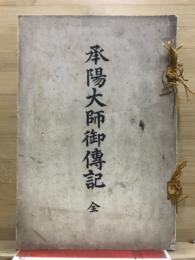 承陽大師御傳記 全